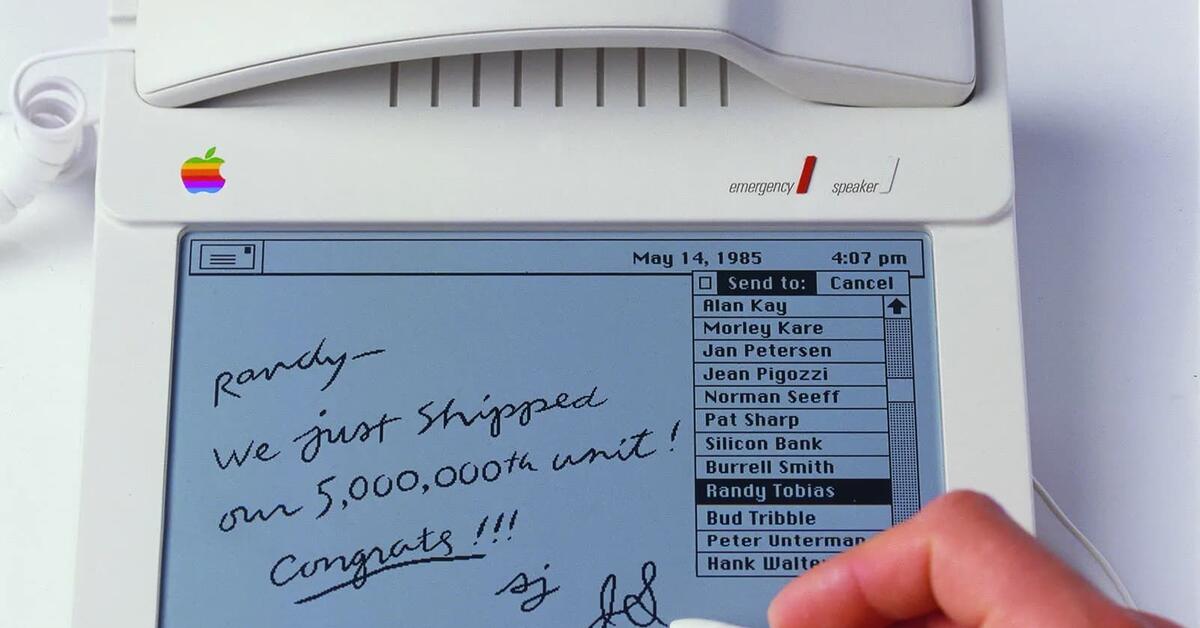 emergency speaker
May 14, 1985 4:07 pm
Send to: Cancel
Alan Kay
Morley Kare
Jan Petersen
Jean Pigozzi
Norman Seeff
Pat Sharp
Silicon Bank
Burrell Smith
Randy Tobias
Bud Tribble
Peter Unterman
Hank
Randy—
We just shipped
our 5,000,000th unit!
Congrats!!!
sj